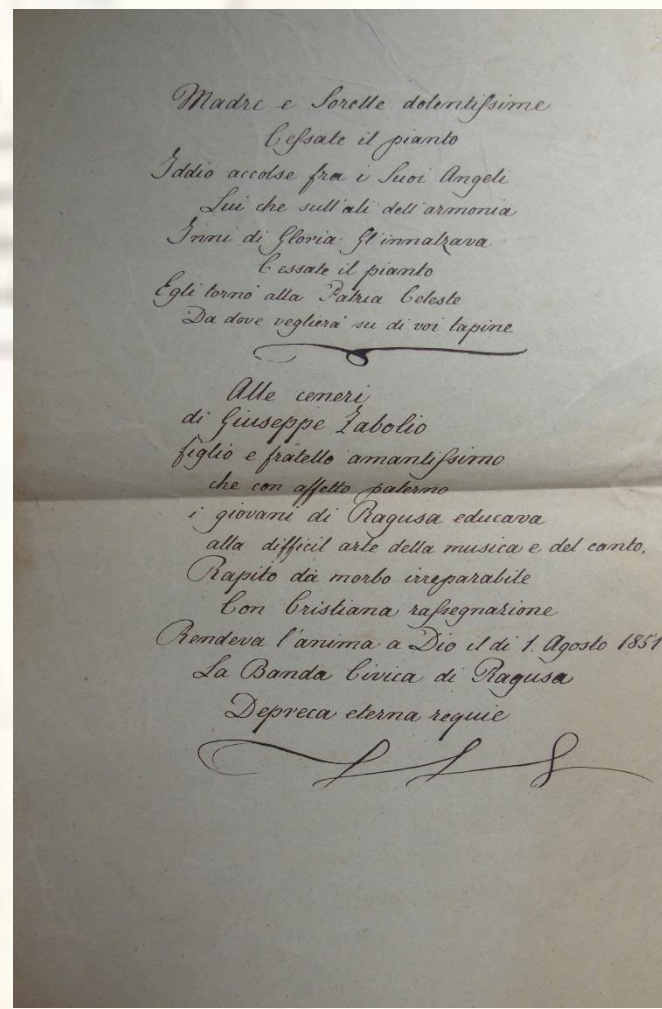 Madre e Sorelle dolentissime
Cessate il pianto
Iddio accolse fra i Suoi Angeli
Lui che sull'ali dell'armonia
Inni di Gloria Gl'innalzava
Cessate il pianto
Egli tornò alla Patria Celeste
Da dove veglierà su di voi tapine
Alle ceneri
di Giuseppe Zabolio
figlio e fratello amantissimo
che con affetto paterno
i giovani di Ragusa educava
alla difficil arte della musica e del canto.
Rapito da morbo irreparabile
Con Cristiana rassegnazione
Rendeva l'anima a Dio il di 1. Agosto 1851
La Banda Civica di Ragusa
Depreca eterna requie